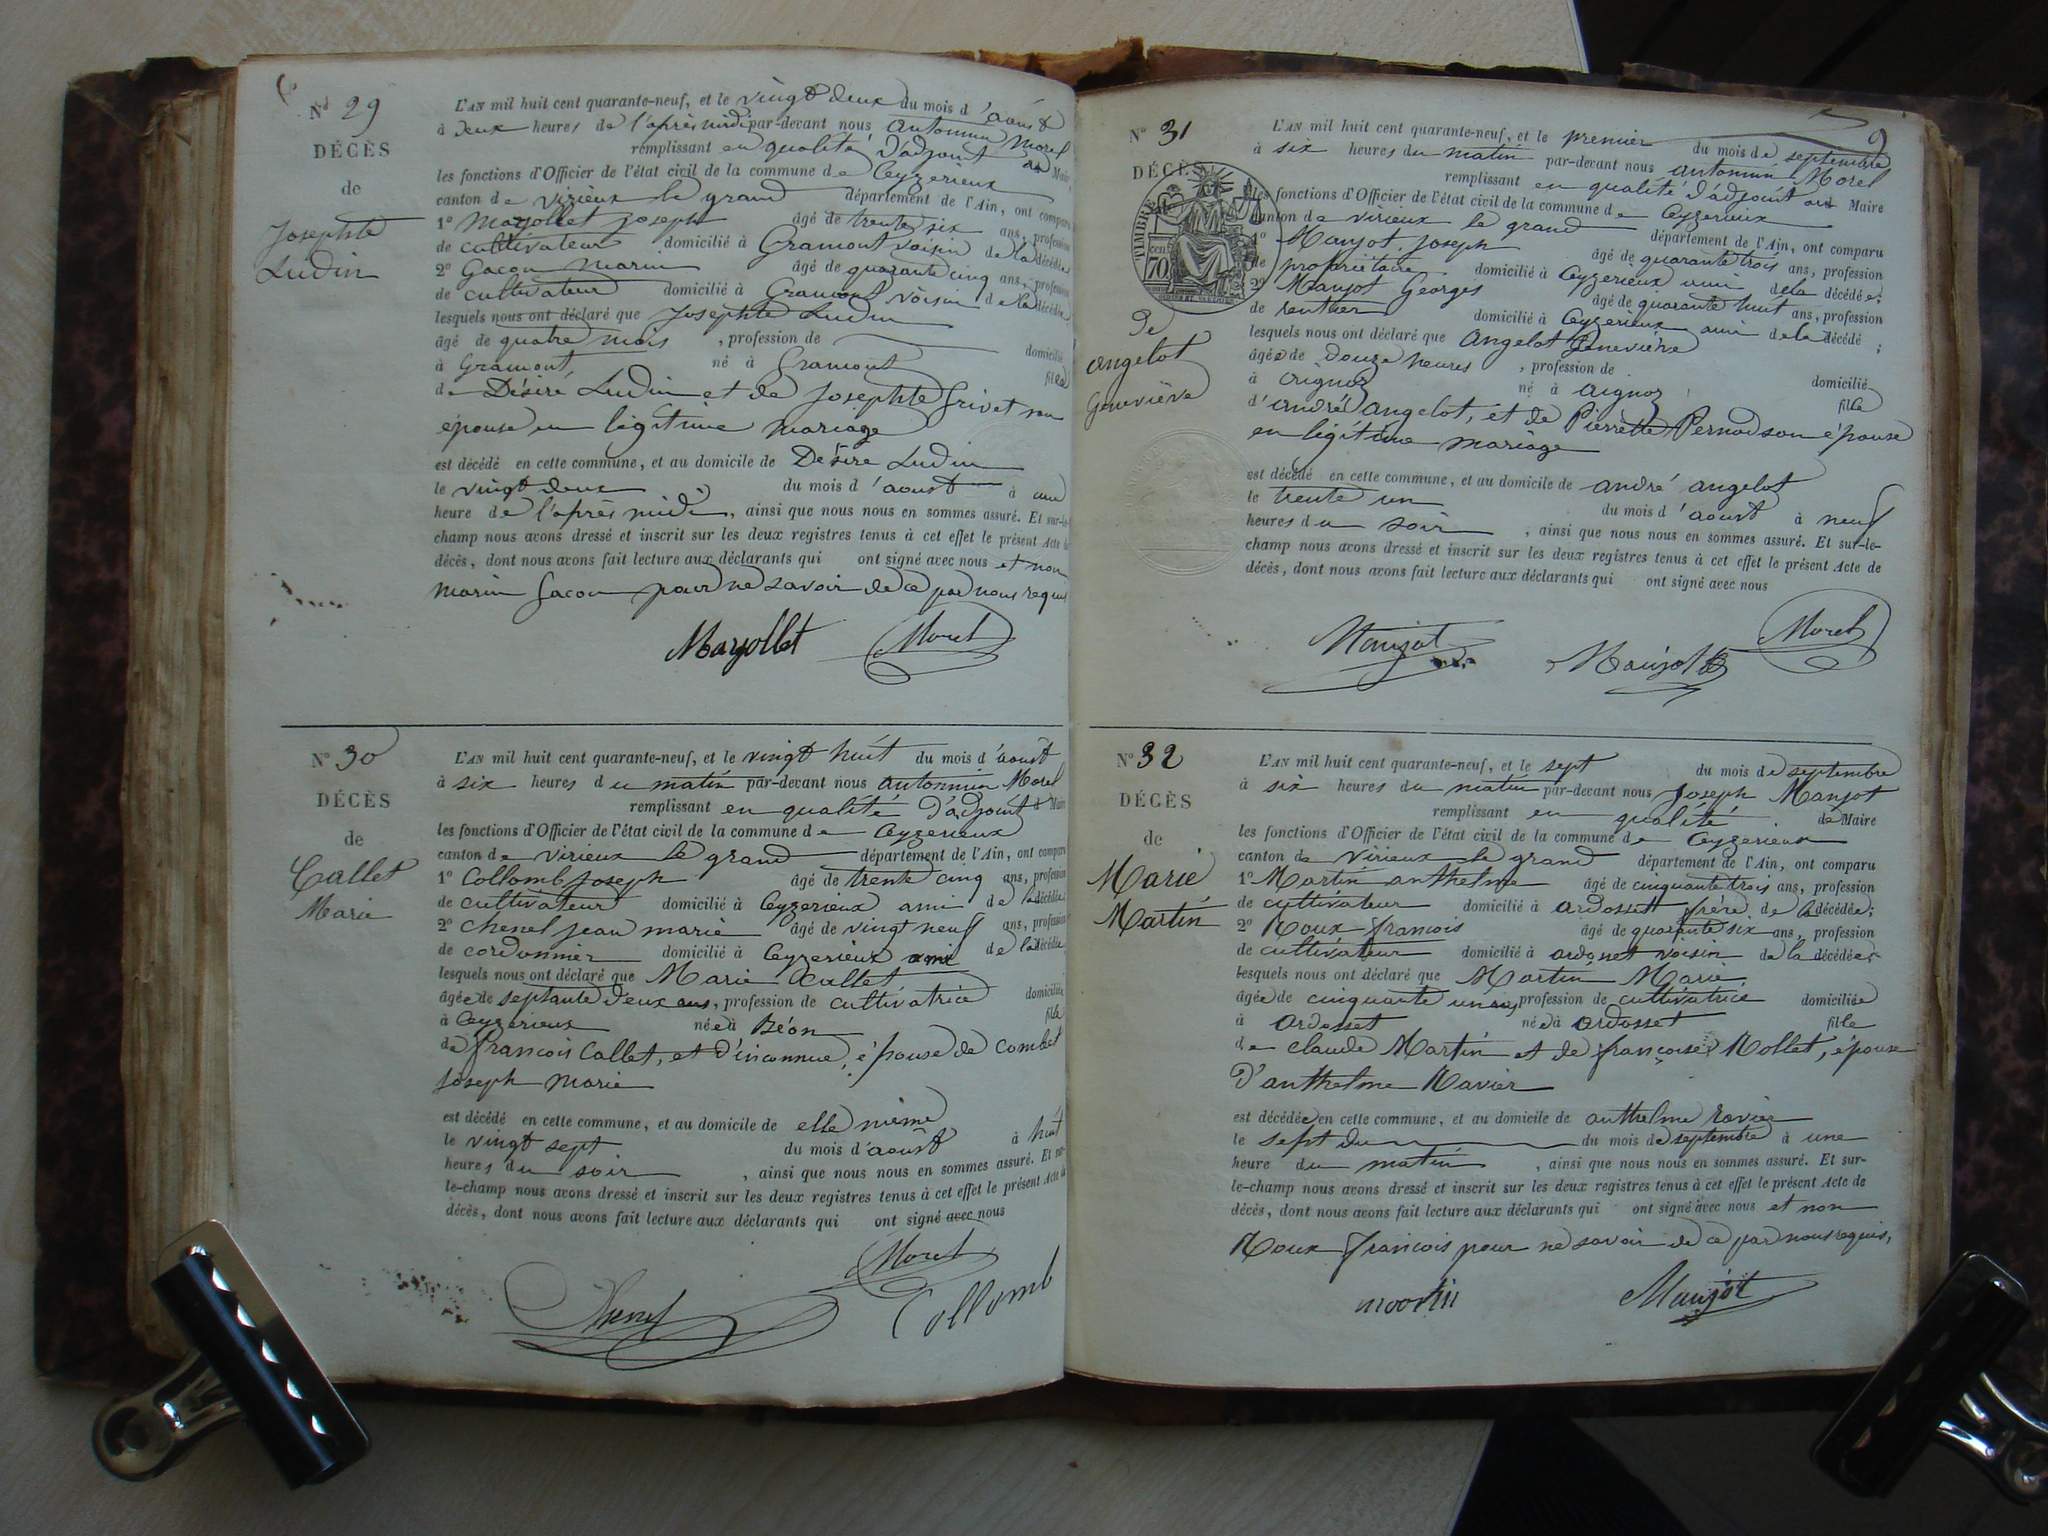 N° 29
DÉCÈS
de
Josephte
Ludin
L'AN mil huit cent quarante-neuf, et le vingt deux du mois d'aoust
à deux heures de l'après midi par-devant nous antonnin Morel
remplissant en qualité d'adjoint au Maire,
les fonctions d'Officier de l'état civil de la commune de Ceyzerieux
canton de virieux le grand département de l'Ain, ont comparu
1° Mayollet joseph âgé de trente six ans, profession
de cultivateur domicilié à Gramont voisin de la décédée
2° Gacon marin âgé de quarante cinq ans, profession
de cultivateur domicilié à Gramont voisin de la décédée,
lesquels nous ont déclaré que josephte Ludin
âgé de quatre mois, profession de domicilié
à Gramont, né à Gramont fille
de Désiré Ludin et de josephte Grivet son
épouse en légitime mariage
est décédé en cette commune, et au domicile de Désiré Ludin
le vingt deux du mois d'aoust à une
heure de l'après midi, ainsi que nous nous en sommes assuré. Et sur-le-
champ nous avons dressé et inscrit sur les deux registres tenus à cet effet le présent Acte de
décès, dont nous avons fait lecture aux déclarants qui ont signé avec nous et non
marin Gacon pour ne savoir de ce par nous requis
Mayollet Morel
N° 30
DÉCÈS
de
Callet
Marie
L'AN mil huit cent quarante-neuf, et le vingt huit du mois d'aoust
à six heures du matin par-devant nous antonnin Morel
remplissant en qualité d'adjoint Maire
les fonctions d'Officier de l'état civil de la commune de Ceyzerieux
canton de virieux le grand département de l'Ain, ont comparu
1° Collomb joseph âgé de trente cinq ans, profession
de cultivateur domicilié à Ceyzerieux ami de la décédée
2° chenel jean marie âgé de vingt neuf ans, profession
de cordonnier domicilié à Ceyzerieux ami de la décédée
lesquels nous ont déclaré que Marie Callet
âgée de septante deux ans, profession de cultivatrice domiciliée
à Ceyzerieux née à Béon fille
de françois Callet, et d'inconnue, épouse de combet
joseph marie
est décédé en cette commune, et au domicile de elle même
le vingt sept du mois d'aoust à huit
heures du soir, ainsi que nous nous en sommes assuré. Et sur-
le-champ nous avons dressé et inscrit sur les deux registres tenus à cet effet le présent Acte de
décès, dont nous avons fait lecture aux déclarants qui ont signé avec nous
Morel
Chenel Collomb
9
N° 31
DÉCÈS
TIMBRE
70
de
angelot
Geneviève
L'AN mil huit cent quarante-neuf, et le premier du mois de septembre
à six heures du matin par-devant nous antonnin Morel
remplissant en qualité d'adjoint au Maire
les fonctions d'Officier de l'état civil de la commune de Ceyzerieux
canton de virieux le grand département de l'Ain, ont comparu
1° Manjot joseph âgé de quarante trois ans, profession
de propriétaire domicilié à Ceyzerieux ami de la décédée;
2° Manjot Georges âgé de quarante huit ans, profession
de rentier domicilié à Ceyzerieux ami de la décédé;
lesquels nous ont déclaré que Angelot Geneviève
âgée de douze heures, profession de domicilié
à aignoz né à aignoz fille
d'andré angelot, et de Pierrette Pernod son épouse
en légitime mariage
est décédé en cette commune, et au domicile de andré angelot
le trente un du mois d'aoust à neuf
heures du soir, ainsi que nous nous en sommes assuré. Et sur-le-
champ nous avons dressé et inscrit sur les deux registres tenus à cet effet le présent Acte de
décès, dont nous avons fait lecture aux déclarants qui ont signé avec nous
Manjot Manjot Morel
N° 32
DÉCÈS
de
Marie
Martin
L'AN mil huit cent quarante-neuf, et le sept du mois de septembre
à six heures du matin par-devant nous joseph Manjot
remplissant en qualité de Maire
les fonctions d'Officier de l'état civil de la commune de Ceyzerieux
canton de virieux le grand département de l'Ain, ont comparu
1° Martin anthelme âgé de cinquante trois ans, profession
de cultivateur domicilié à ardosset frère de la décédée;
2° Roux françois âgé de quarante six ans, profession
de cultivateur domicilié à ardosset voisin de la décédée;
lesquels nous ont déclaré que Martin Marie
âgée de cinquante un ans, profession de cultivatrice domiciliée
à ardosset née à ardosset fille
de claude Martin et de françoise Mollet, épouse
d'anthelme Ravier
est décédée en cette commune, et au domicile de anthelme ravier
le sept du du mois de septembre à une
heure du matin, ainsi que nous nous en sommes assuré. Et sur-
le-champ nous avons dressé et inscrit sur les deux registres tenus à cet effet le présent Acte de
décès, dont nous avons fait lecture aux déclarants qui ont signé avec nous et non
Roux françois pour ne savoir de ce par nous requis,
martin Manjot